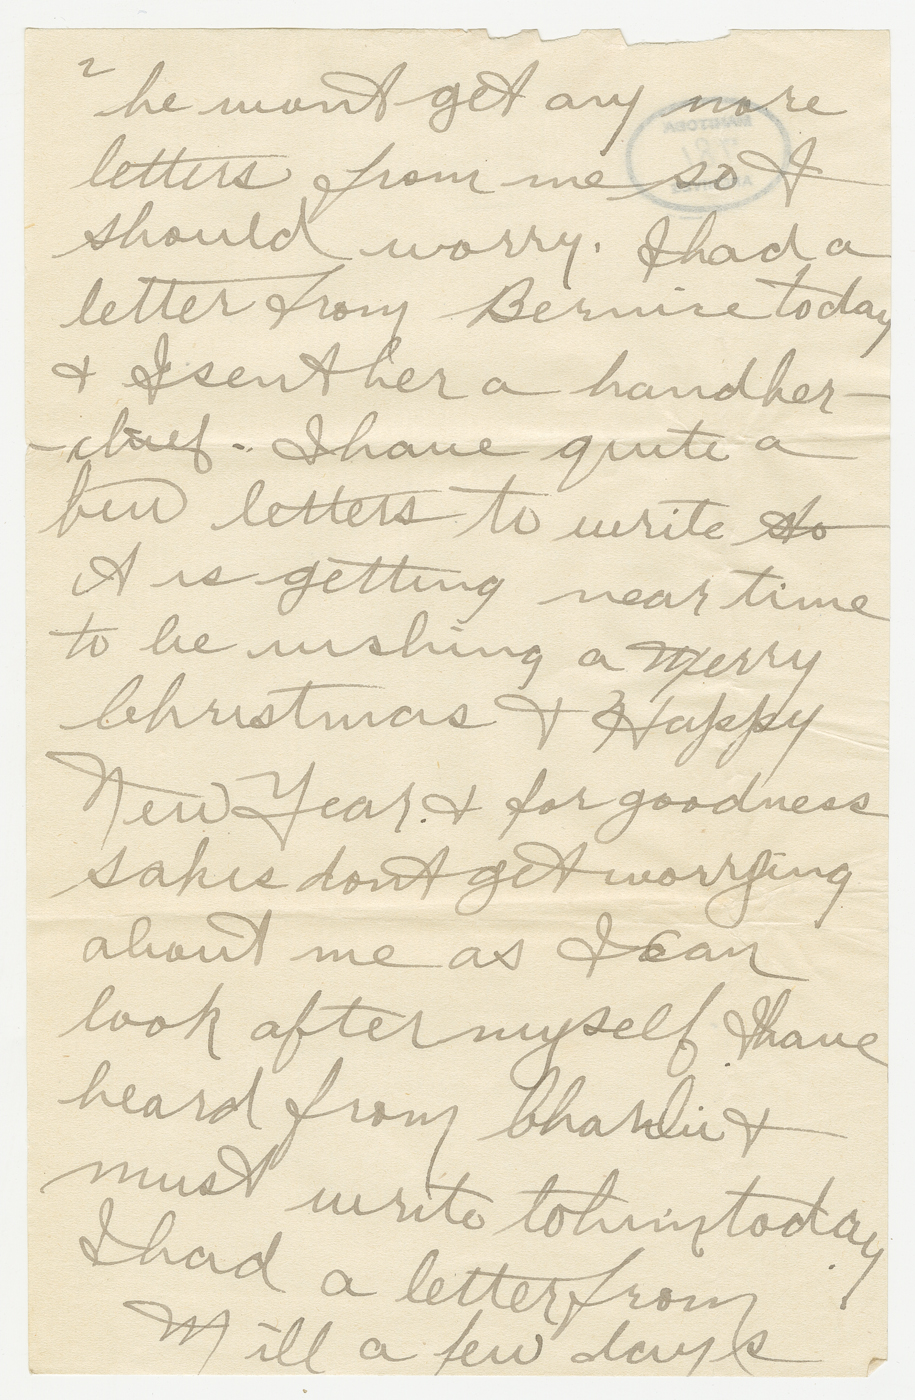 2
he wont get any more
letters from me so I
should worry. I had a
letter from Bernice today
& I sent her a handker-
-chief. I have quite a
few letters to write so
It is getting near time
to be wishing a Merry
Christmas & Happy
New Year. & for goodness
sakes dont get worrying
about me as I can
look after myself. I have
heard from Charlie &
must write to him today.
I had a letter from
Mill a few days
MANITOBA